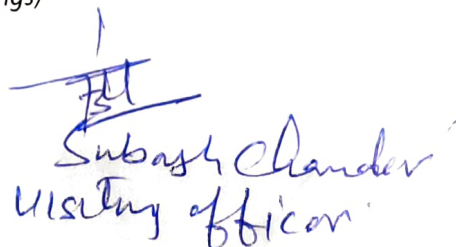 gs)
Subash Chander
Visiting officer